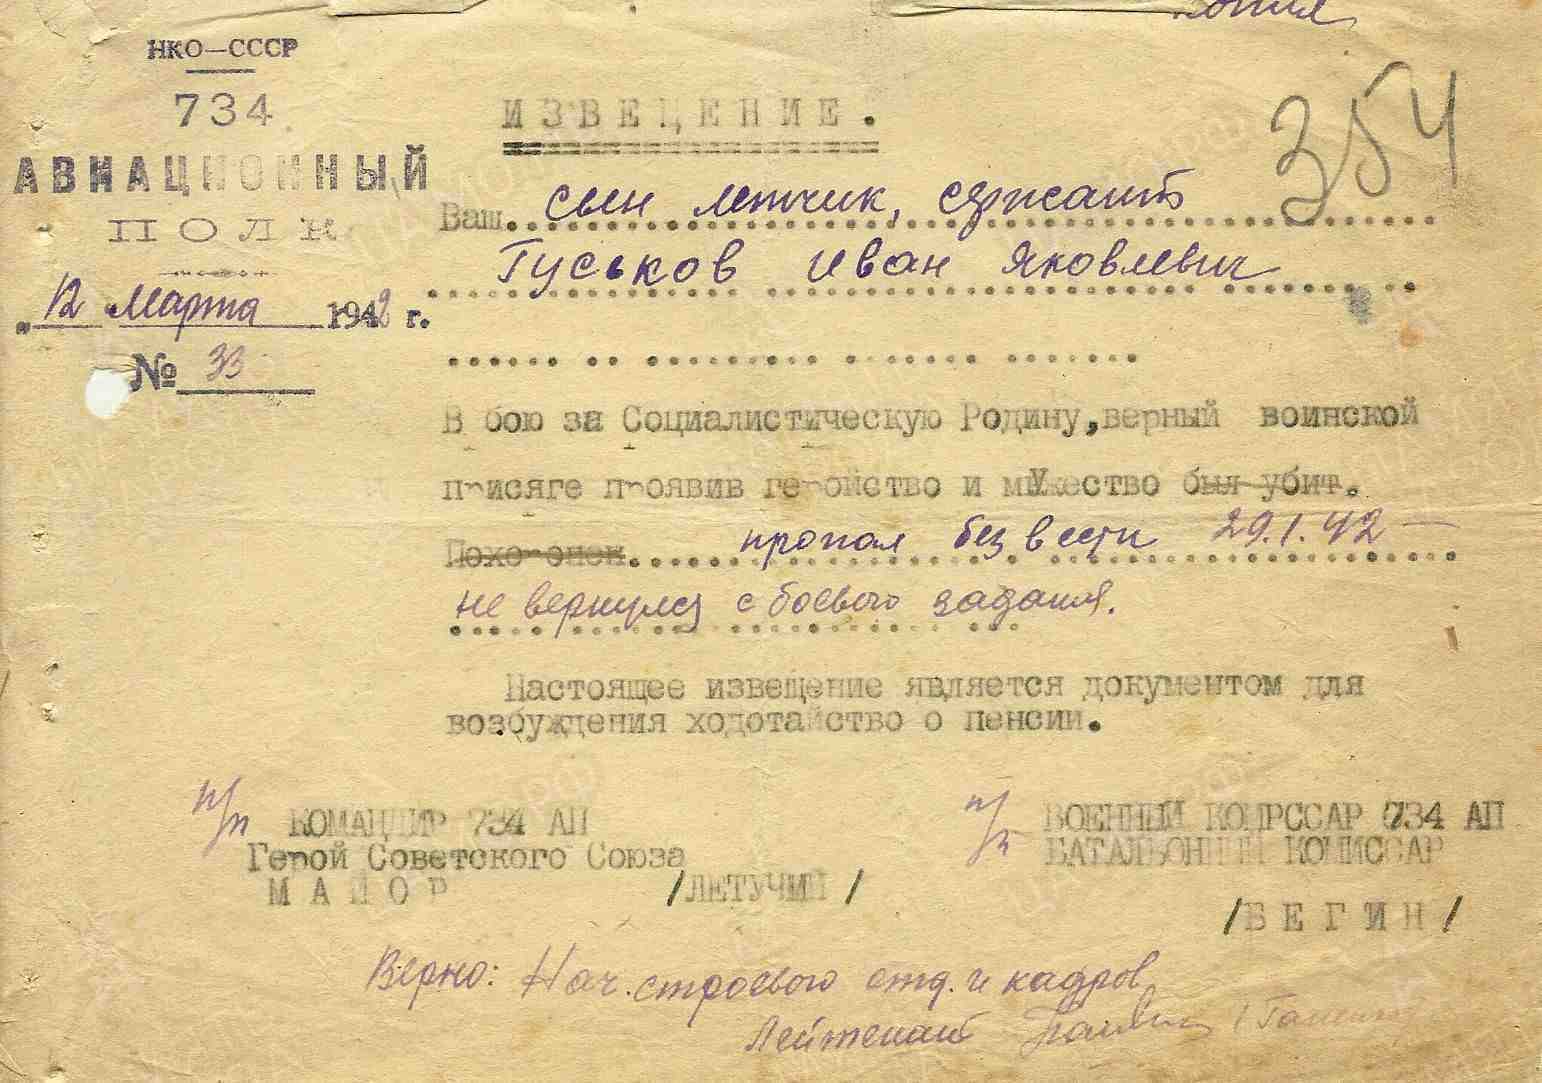 копия
НКО—СССР
734
АВИАЦИОННЫЙ
ПОЛК
„12 марта 1942 г.
№ 33
354
ИЗВЕЩЕНИЕ.
Ваш сын летчик, сержант
Гуськов Иван Яковлевич
В бою за Социалистическую Родину, верный воинской
присяге проявив геройство и мужество был убит.
Похоронен. пропал без вести 29.1.42 —
не вернулся с боевого задания.
Настоящее извещение является документом для
возбуждения ходотайство о пенсии.
п/п КОМАНДИР 734 АП
Герой Советского Союза
МАЙОР /ЛЕТУЧИЙ/
п/п ВОЕННЫЙ КОМРССАР 734 АП
БАТАЛЬОННЫЙ КОМИССАР
/БЕГИН/
Верно: Нач. строевого отд. и кадров
Лейтенант